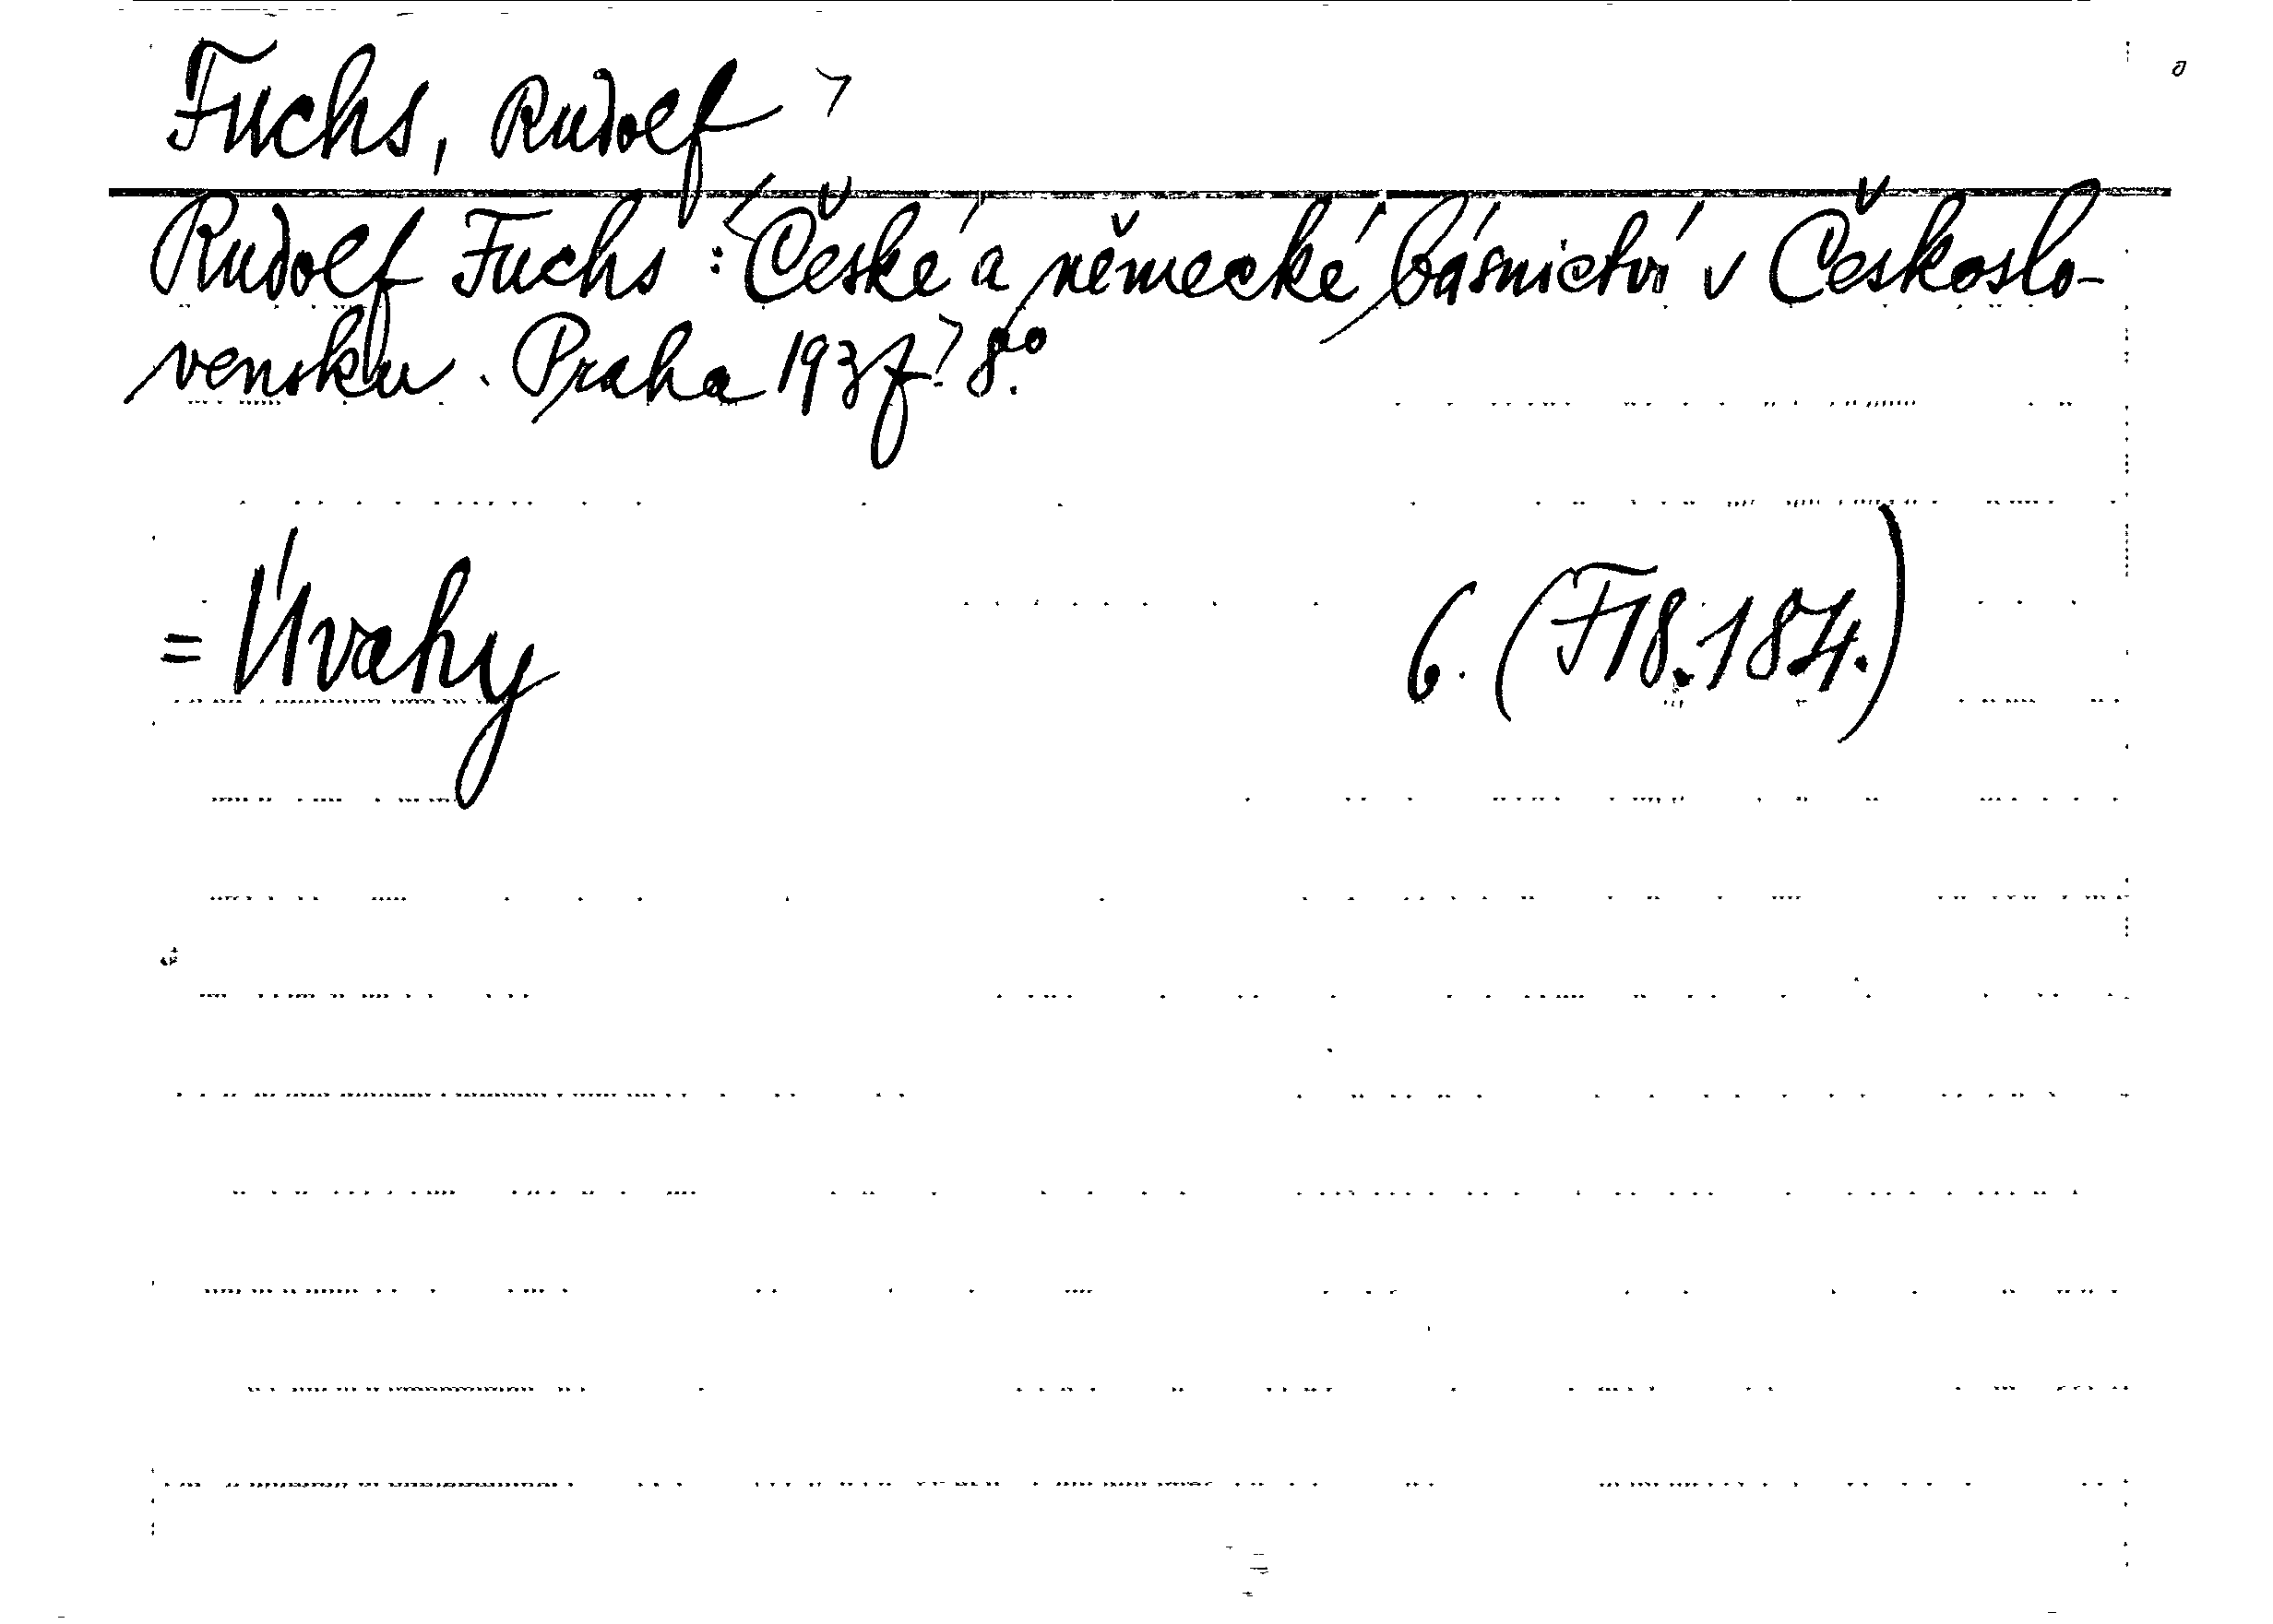 Fuchs, Rudolf ⁷
Rudolf Fuchs: České a německé básnictví v Českoslo-
vensku. Praha 1937. 8°.
= Úvahy 6. (F18.184.)